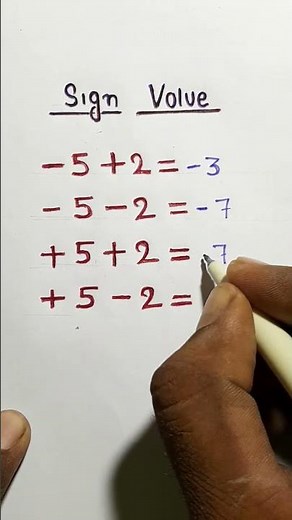 Sign Volue
-5+2=-3
-5-2=-7
+5+2=7
+5-2=